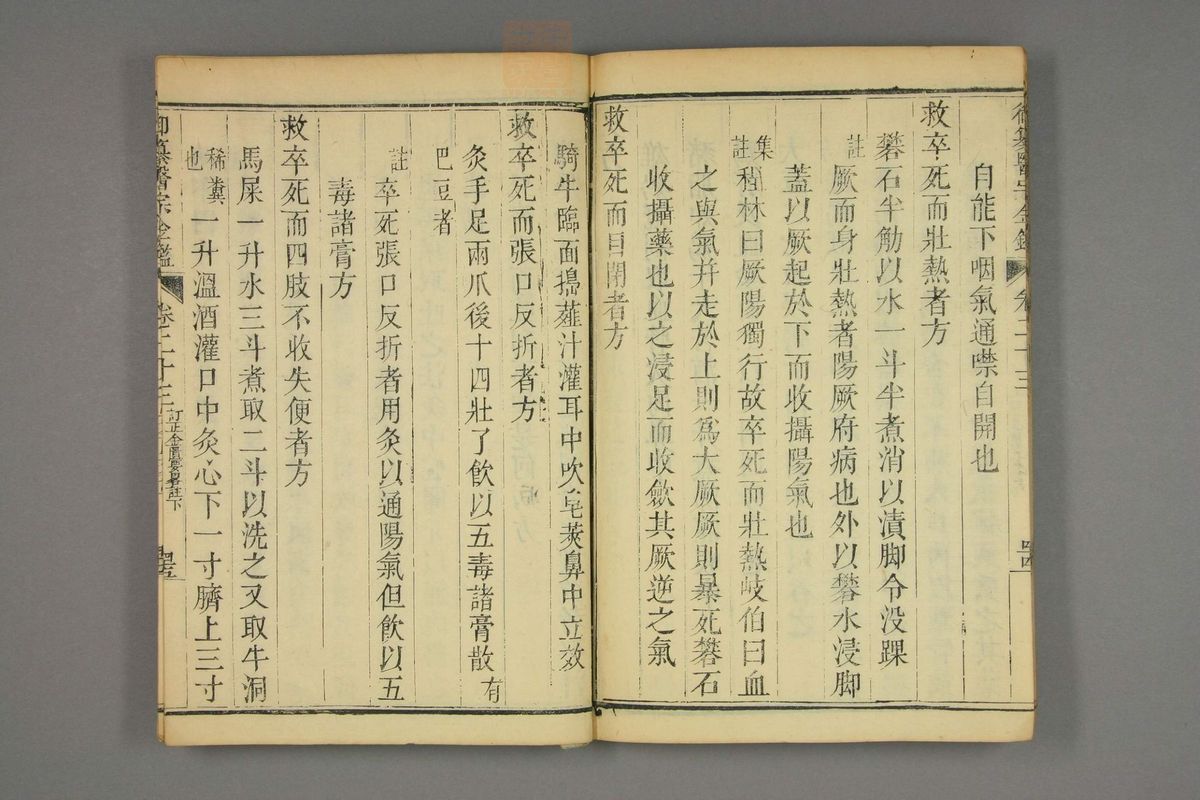 御纂醫宗金鑑 卷二十三 四四
自能下咽氣通噤自開也
救卒死而壯熱者方
礬石半觔以水一斗半煮消以漬脚令没踝
註 厥而身壯熱者陽厥府病也外以礬水浸脚
蓋以厥起於下而收攝陽氣也
集註 程林曰厥陽獨行故卒死而壯熱岐伯曰血
之與氣并走於上則爲大厥厥則暴死礬石
收攝藥也以之浸足而收歛其厥逆之氣
救卒死而目閉者方
騎牛臨面搗薤汁灌耳中吹皂莢鼻中立效
救卒死而張口反折者方
灸手足兩爪後十四壯了飲以五毒諸膏散有
巴豆者
註 卒死張口反折者用灸以通陽氣但飲以五
毒諸膏方
救卒死而四肢不收失便者方
馬屎一升水三斗煮取二斗以洗之又取牛洞
稀糞也一升溫酒灌口中灸心下一寸臍上三寸
御纂醫宗金鑑 卷二十三 訂正金匱要畧註下 四五